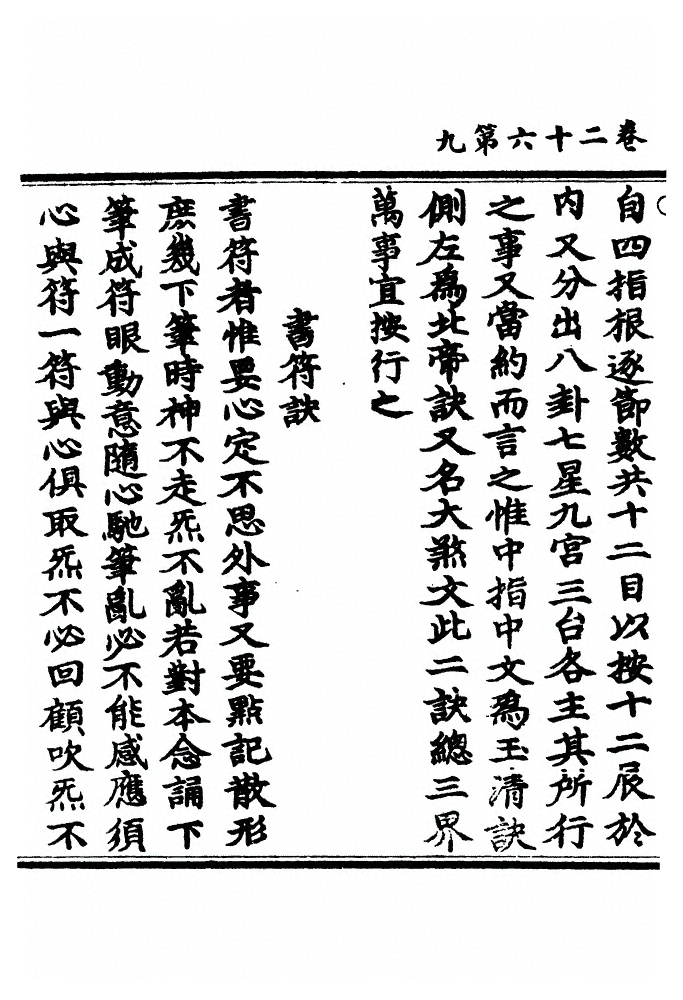 卷二十六第九
自四指根逐節數共十二目以按十二辰於
内又分出八卦七星九宮三台各主其所行
之事又當約而言之惟中指中文爲玉清訣
側左爲北帝訣又名大煞文此二訣總三界
萬事宜按行之
書符訣
書符者惟要心定不思外事又要點記散形
庶幾下筆時神不走炁不亂若對本念誦下
筆成符眼動意隨心馳筆亂必不能感應須
心與符一符與心俱取炁不必回顧吹炁不